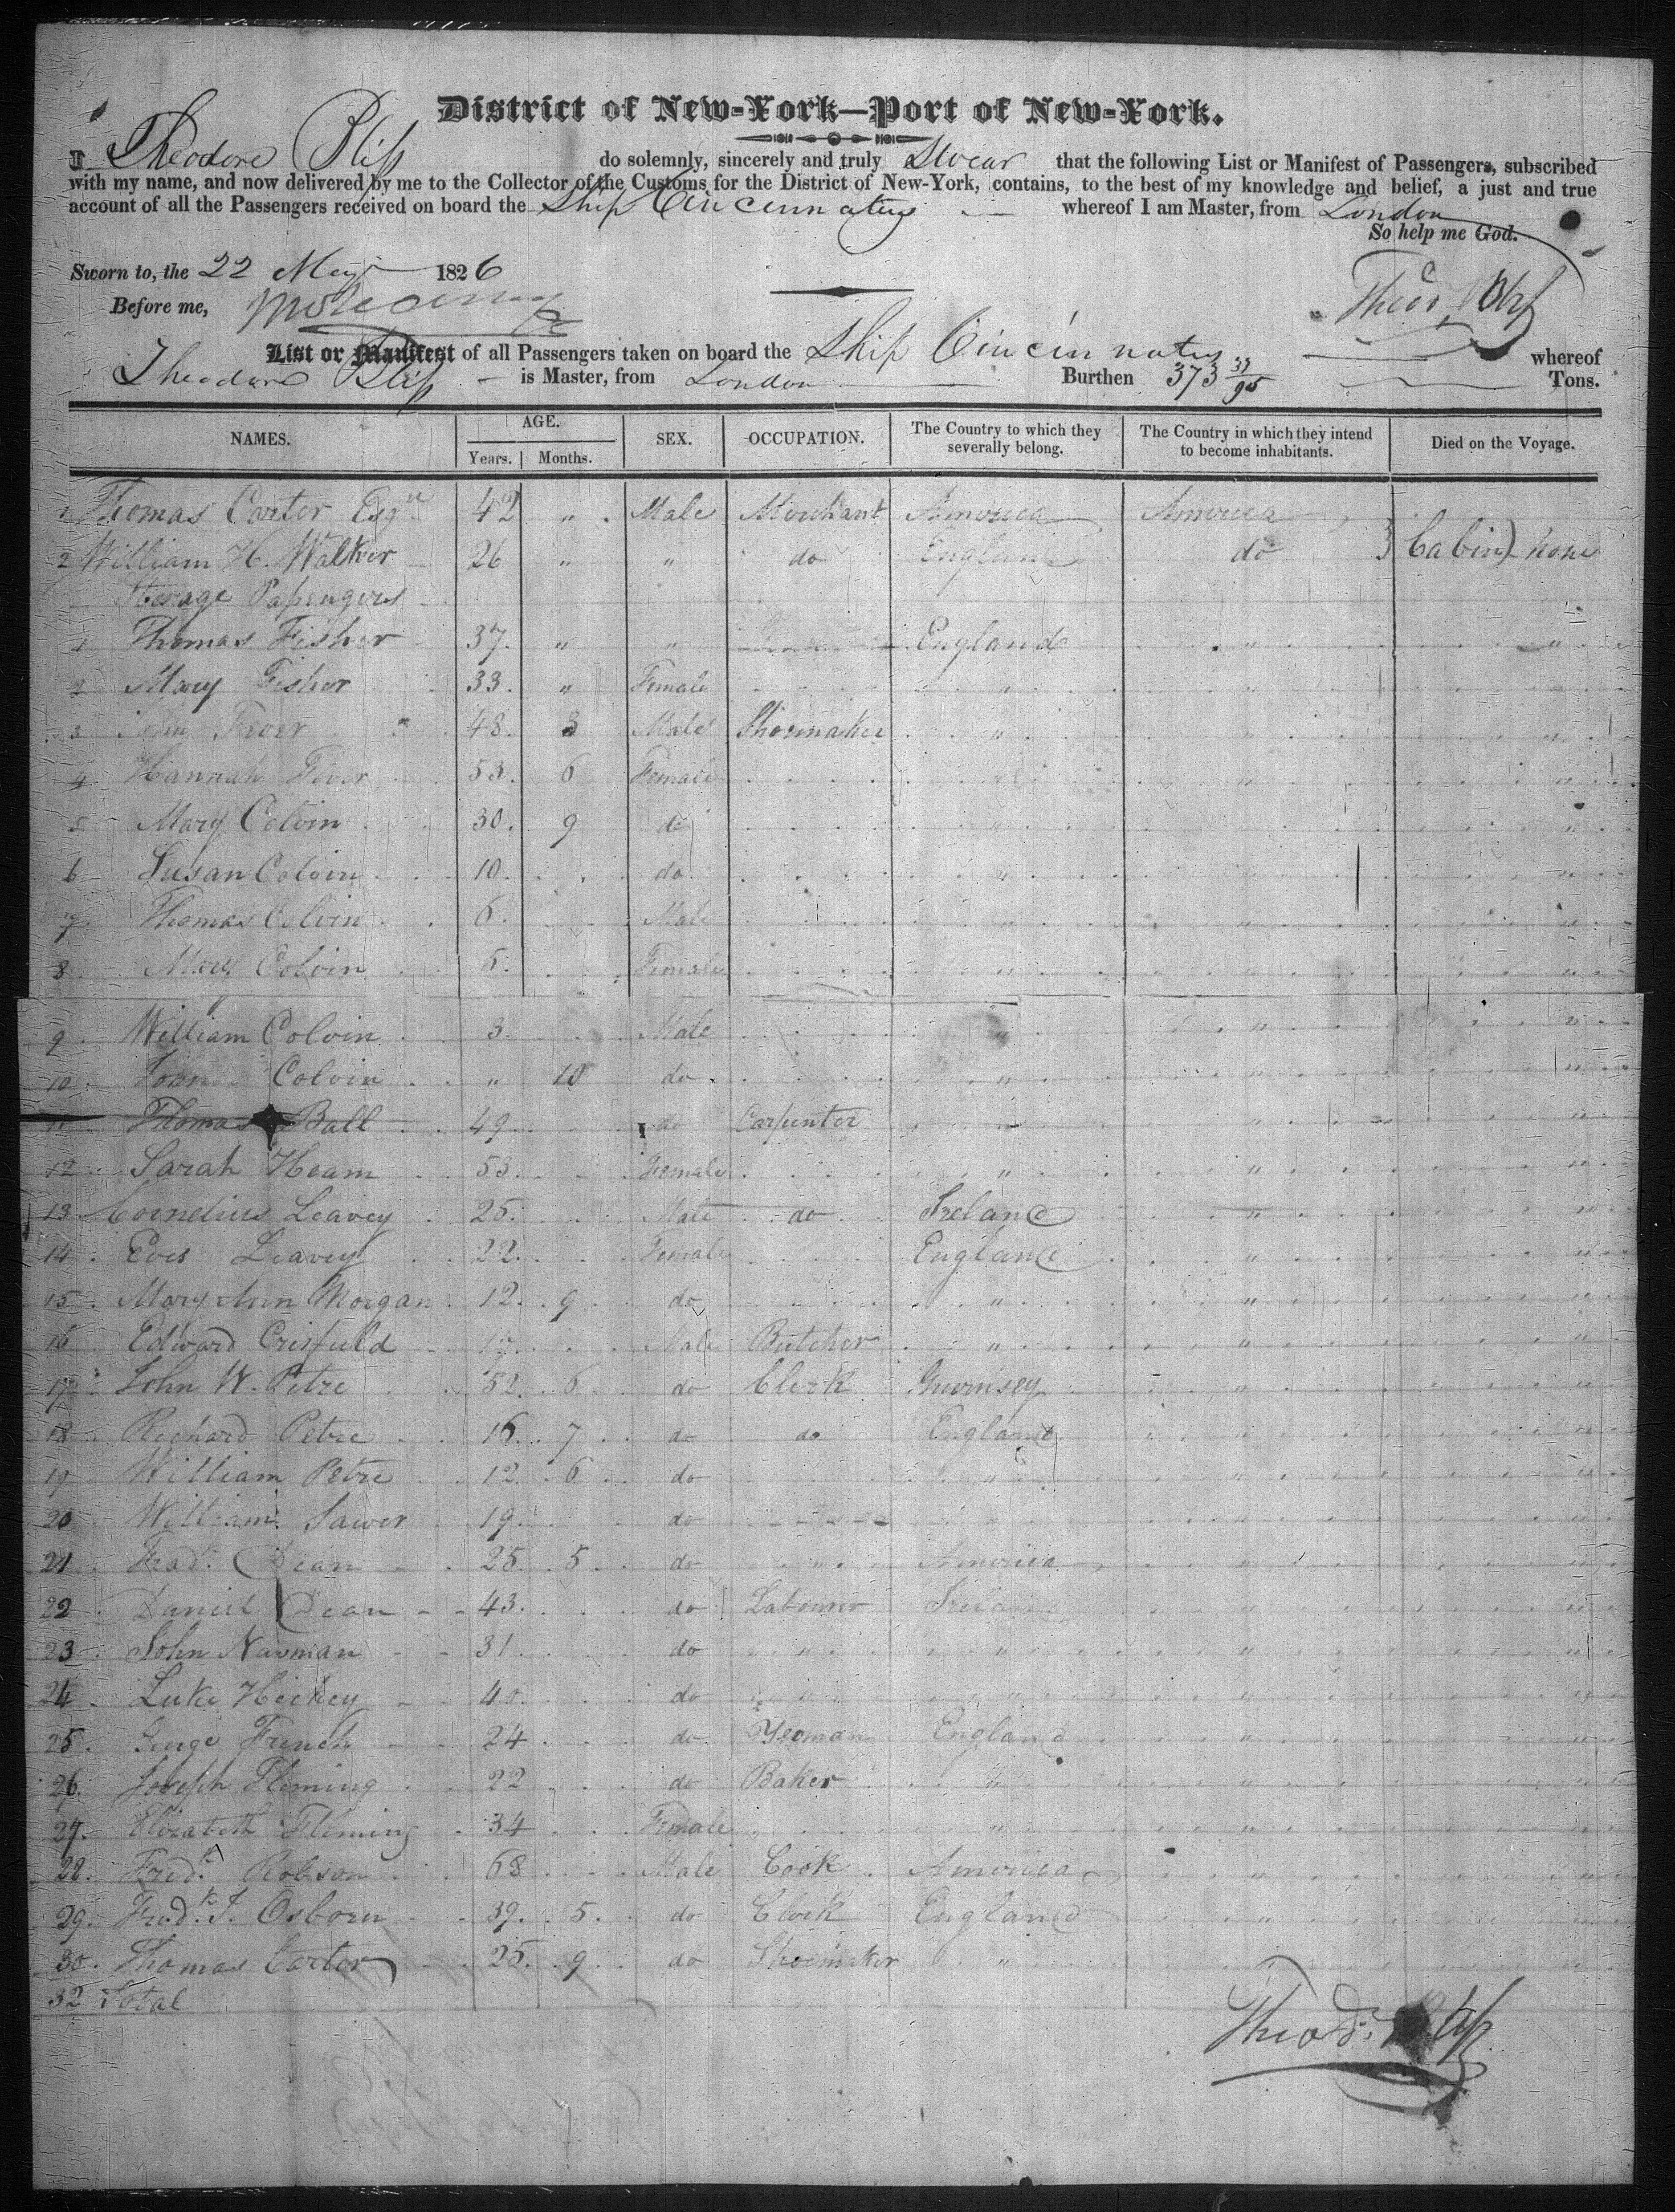 District of New-York—Port of New-York.
I Theodore Bliss do solemnly, sincerely and truly Swear that the following List or Manifest of Passengers, subscribed
with my name, and now delivered by me to the Collector of the Customs for the District of New-York, contains, to the best of my knowledge and belief, a just and true
account of all the Passengers received on board the Ship Cincinnatus whereof I am Master, from London
So help me God.
Sworn to, the 22 May 1826
Before me,
Theod Bliss
List or Manifest of all Passengers taken on board the Ship Cincinnatus whereof
Theodore Bliss is Master, from London Burthen 373 37/95 Tons.
NAMES. AGE. Years. Months. SEX. OCCUPATION. The Country to which they severally belong. The Country in which they intend to become inhabitants. Died on the Voyage.
1 Thomas Carter Esqr 42 " Male Merchant America America
2 William H. Walker 26 " " do England do } Cabin) none
Sterage Passengers
1 Thomas Fisher 37. " " England " "
2 Mary Fisher 33. " Female " " "
3 John Fever 48. 3 Male Shoemaker " " "
4 Hannah Fever 53. 6 Female " " "
5 Mary Colvin 30. 9 do " " "
6 Susan Colvin 10. do " " "
7 Thomas Colvin 6. Male " " "
8 Mary Colvin 5. Female " " "
9 William Colvin 3. Male " " "
10 John Colvin " 10 do " " "
11 Thomas Ball 49 do Carpenter " " "
12 Sarah Heam 53. Female " " "
13 Cornelius Leavey 25. Male do Ireland " "
14 Eves Leavey 22. Female England " "
15 Mary Ann Morgan 12. 9 do " " "
16 Edward Crisfield Male Butcher " " "
17 John W. Petre 52. 6 do Clerk Guernsey " "
18 Richard Petre 16. 7 do do England " "
19 William Petre 12. 6 do " " "
20 William Sawer 19. do " " "
21 Fredk. Dean 25. 5. do " America " "
22 Daniel Dean 43. do Labourer Ireland " "
23 John Navman 31. do " " " "
24 Luke Hickey 40. do " " " "
25. George French 24 do Yeoman England " "
26. Joseph Fleming 22 do Baker " " "
27. Elizabeth Fleming 34 Female " " "
28. Fredk. Robson 68 Male Cook America " "
29. Fredk. J. Osborn 39. 5. do Clerk England " "
30. Thomas Carter 25. 9 do Shoemaker " "
32 Total
Theod. Bliss